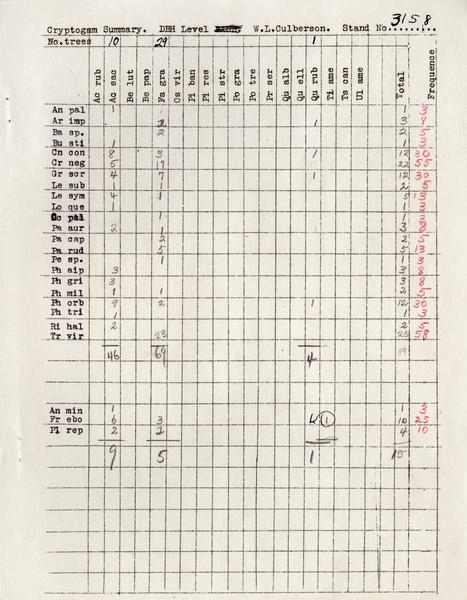 Cryptogam Summary. DBH Level W.L.Culberson. Stand No. 3158
No.trees 10 29 1
Ac rub Ac sac Be lut Be pap Fa gra Os vir Pi ban Pi res Pi str Po gra Po tre Pr ser Qu alb Qu ell Qu rub Ti ame Ts can Ul ame Total Frequence
An pal 1 1 3
Ar imp 2 1 3 8
Ba sp. 2 2 5
Bu sti 1 1 3
Cn con 8 3 1 12 30
Cr neg 5 17 22 55
Gr scr 4 7 1 12 30
Le sub 1 1 2 5
Le sym 4 1 5 13
Lo que 1 1 3
Oc pal 1 1 3
Pa aur 2 1 3 8
Pa cap 2 2 5
Pa rud 5 5 13
Pe sp. 1 1 3
Ph aip 3 3 8
Ph gri 3 3 8
Ph mil 1 1 2 5
Ph orb 9 2 1 12 30
Ph tri 1 1 3
Ri hal 2 2 5
Tr vir 23 23 58
46 69 4
An min 1 1 3
Fr ebo 6 3 1 10 25
Pl rep 2 2 4 10
9 5 1 15